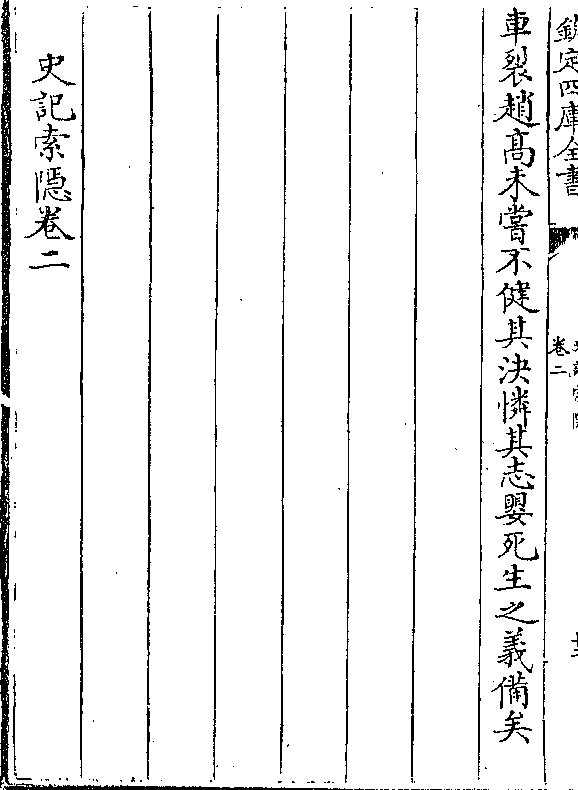 欽定四庫全書
卷二
車裂趙高未嘗不健其決憐其志嬰死生之義備矣
史記索隱卷二